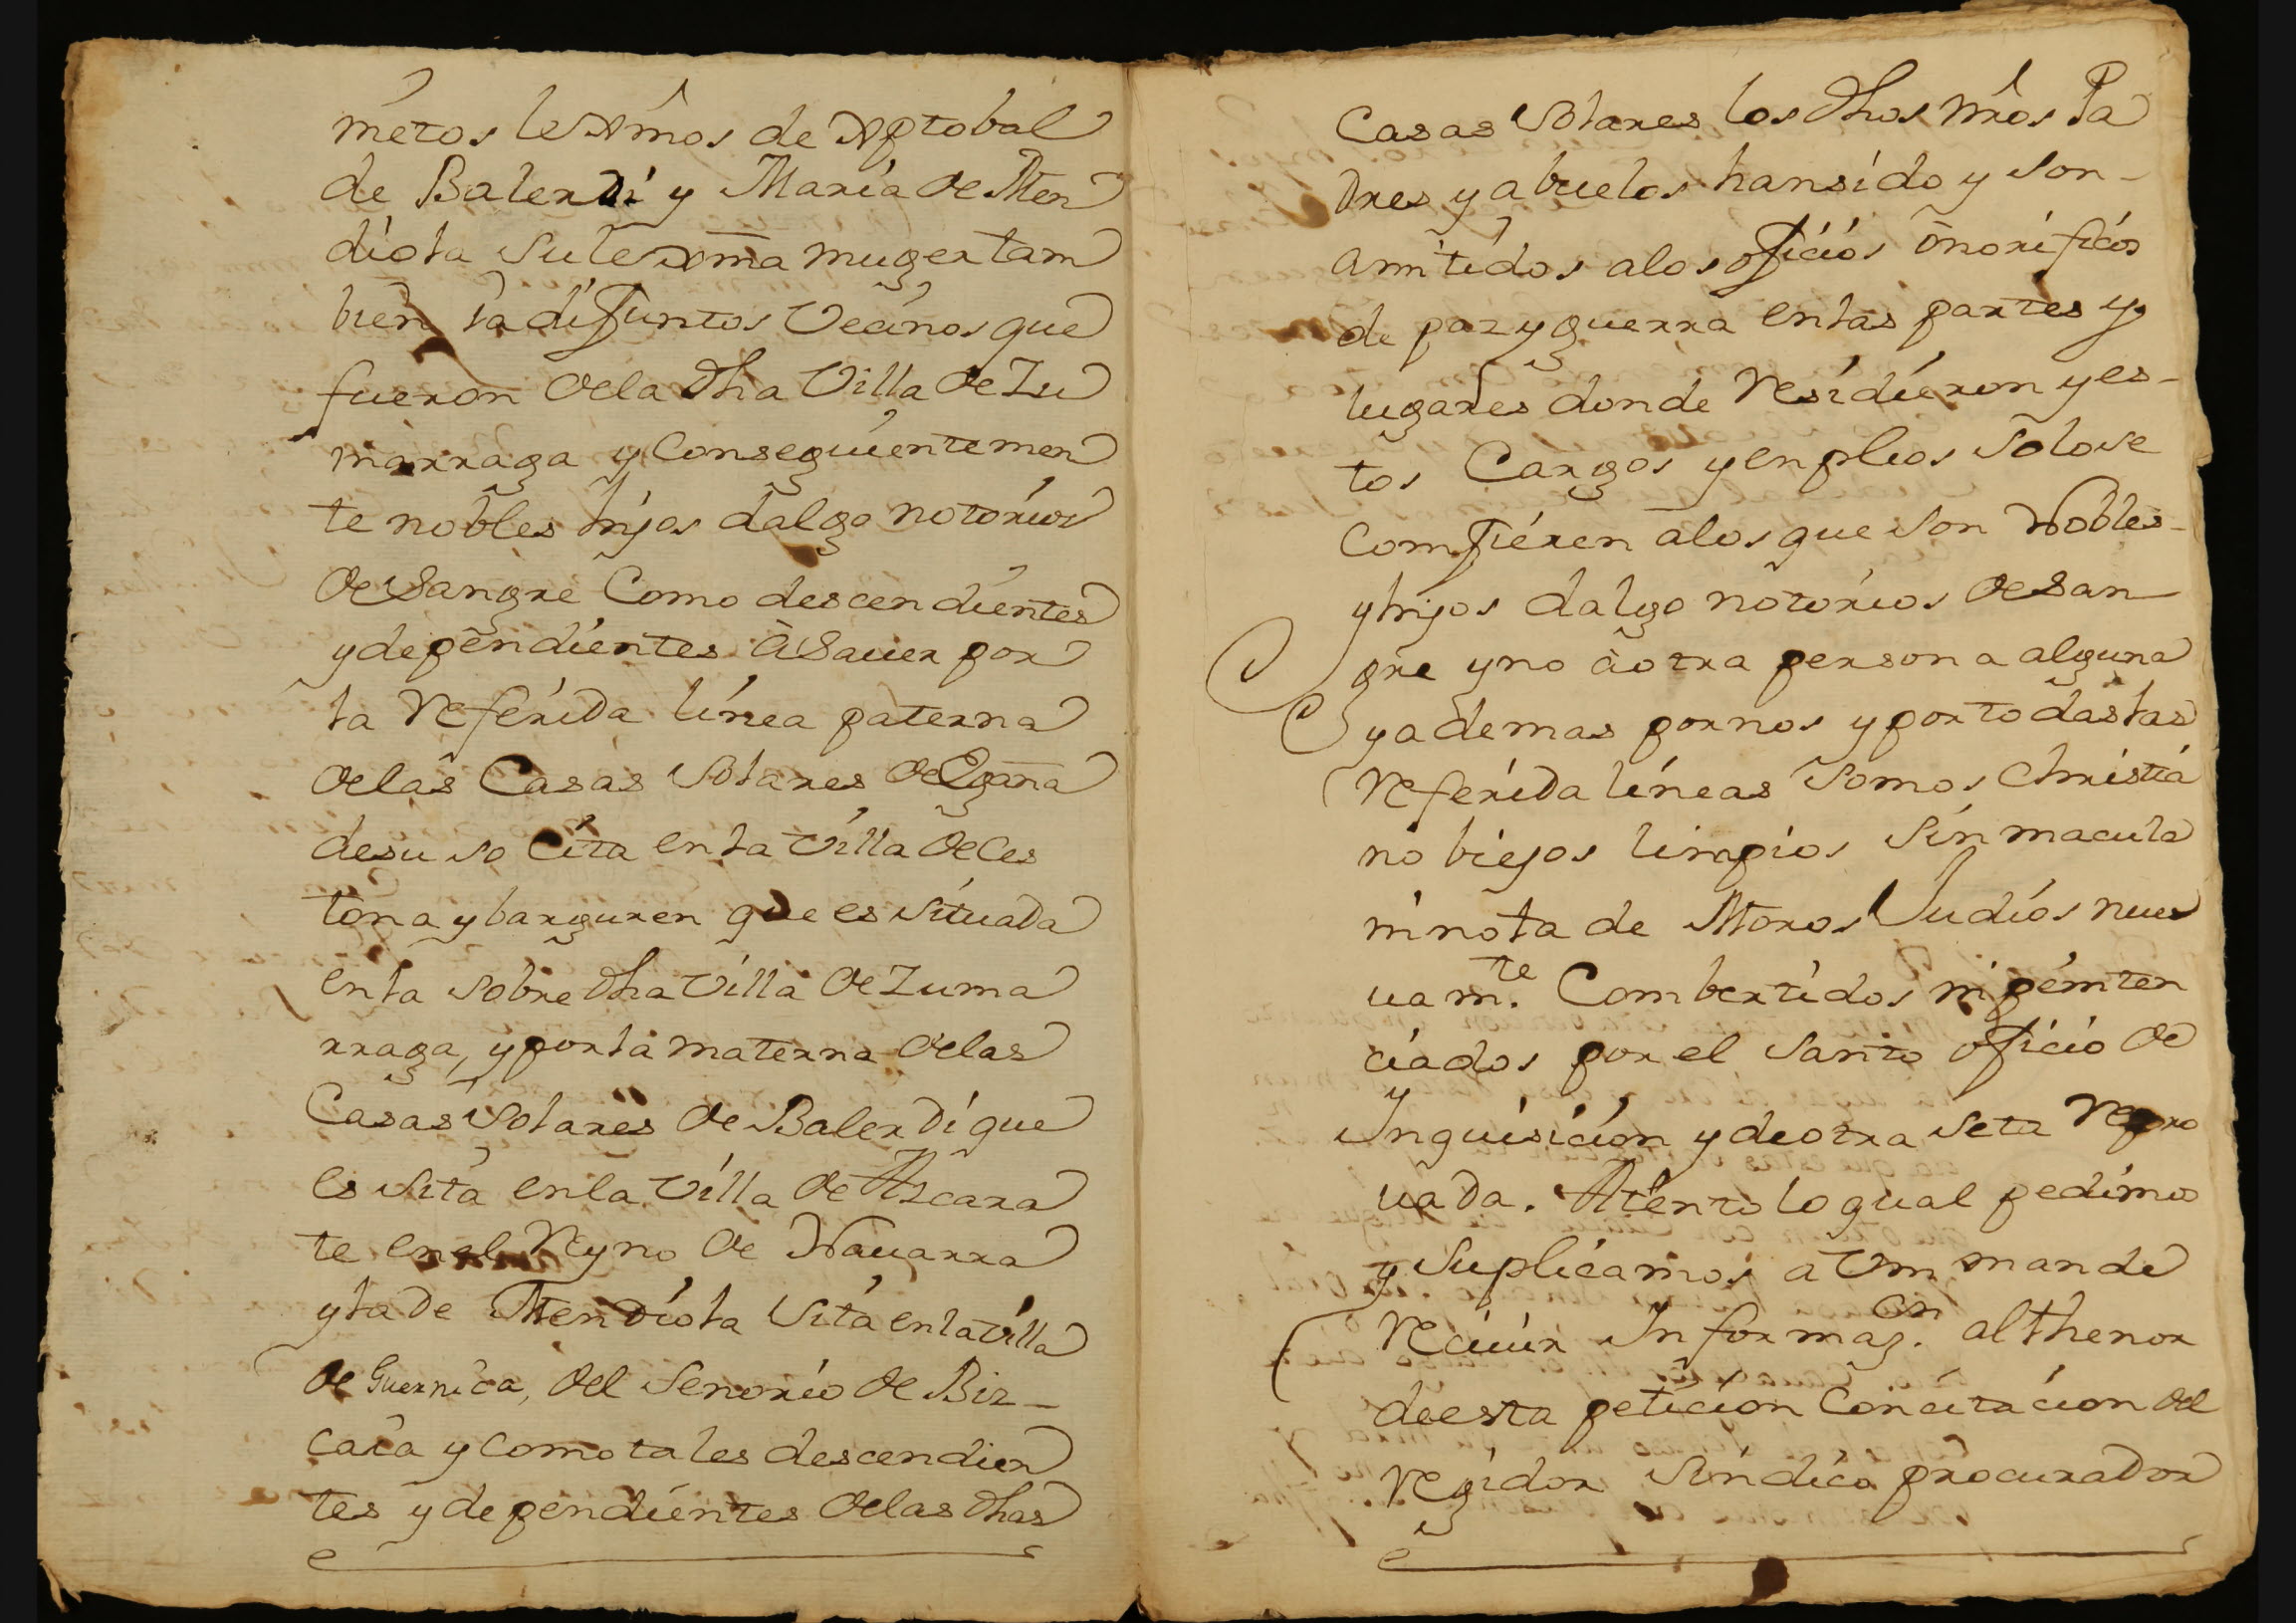 nietos lexmos de Xptobal
de Balerdi y Maria de Men
diola su lexma muger tam
bien ia difuntos Vecinos que
fueron de la dha Villa de Zu
marraga y Conseguientemen
te nobles hijos dalgo notorios
de Sangre Como descendientes
y dependientes à Sauer por
la Referida linea paterna
de las Casas Solares de Egaña
de suso cita en la Villa de Ces
tona y barguren que es situada
en la sobre dha Villa de Zuma
rraga, y por la materna de las
Casas Solares de Balerdi que
es sita en la Villa de Azcara
te en el Reyno de Nauarra
y la de Mendiola sita en la Villa
de Guernica, del Senorio de Biz-
caia y como tales descendien
tes y dependientes de las dhas
Casas Solares los dhos nros Pa
dres y abuelos han sido y son-
amitidos a los oficios onorificos
de paz y guerra en las partes y
lugares donde Residieron y es-
tos Cargos y enpleos solo se
Comfieren a los que son Nobles-
y hijos dalgo notorios de San
gre y no à otra persona alguna
y ademas por nos y por todas las
Referida lineas somos Christia
no biejos limpios sin macula
ni nota de Moros Judios nue
uamte. Combertidos ni peniten
ciados por el Santo oficio de
Ynquisicion y de otra seta Repro
uada. Atento lo qual pedimos
y Suplicamos a Vm mande
Reciuir Informazon. al thenor
de esta peticion Con citacion del
Regidor Sindico procurador